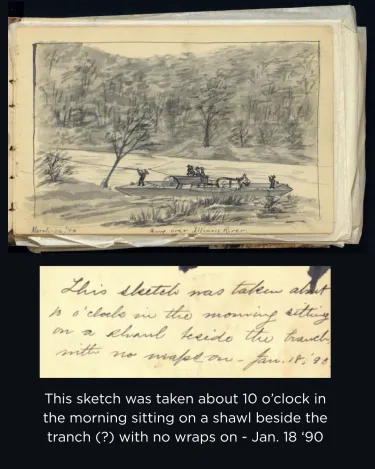 Ferry over Illinois River
This sketch was taken about
10 o'clock in the morning sitting
on a shawl beside the branch
with no wraps on - Jan. 18, '90
This sketch was taken about 10 o'clock in
the morning sitting on a shawl beside the
tranch (?) with no wraps on - Jan. 18 '90